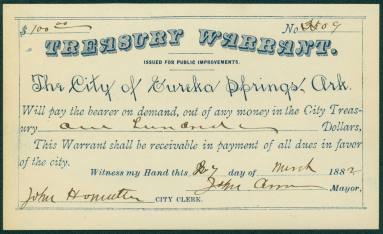 $100.00 No. 3509
TREASURY WARRANT.
ISSUED FOR PUBLIC IMPROVEMENTS.
The City of Eureka Springs, Ark.
Will pay the bearer on demand, out of any money in the City Treas-
ury One Hundred Dollars,
This Warrant shall be receivable in payment of all dues in favor
of the city.
Witness my Hand this 27 day of March 1882
John Mayor.
John CITY CLERK.